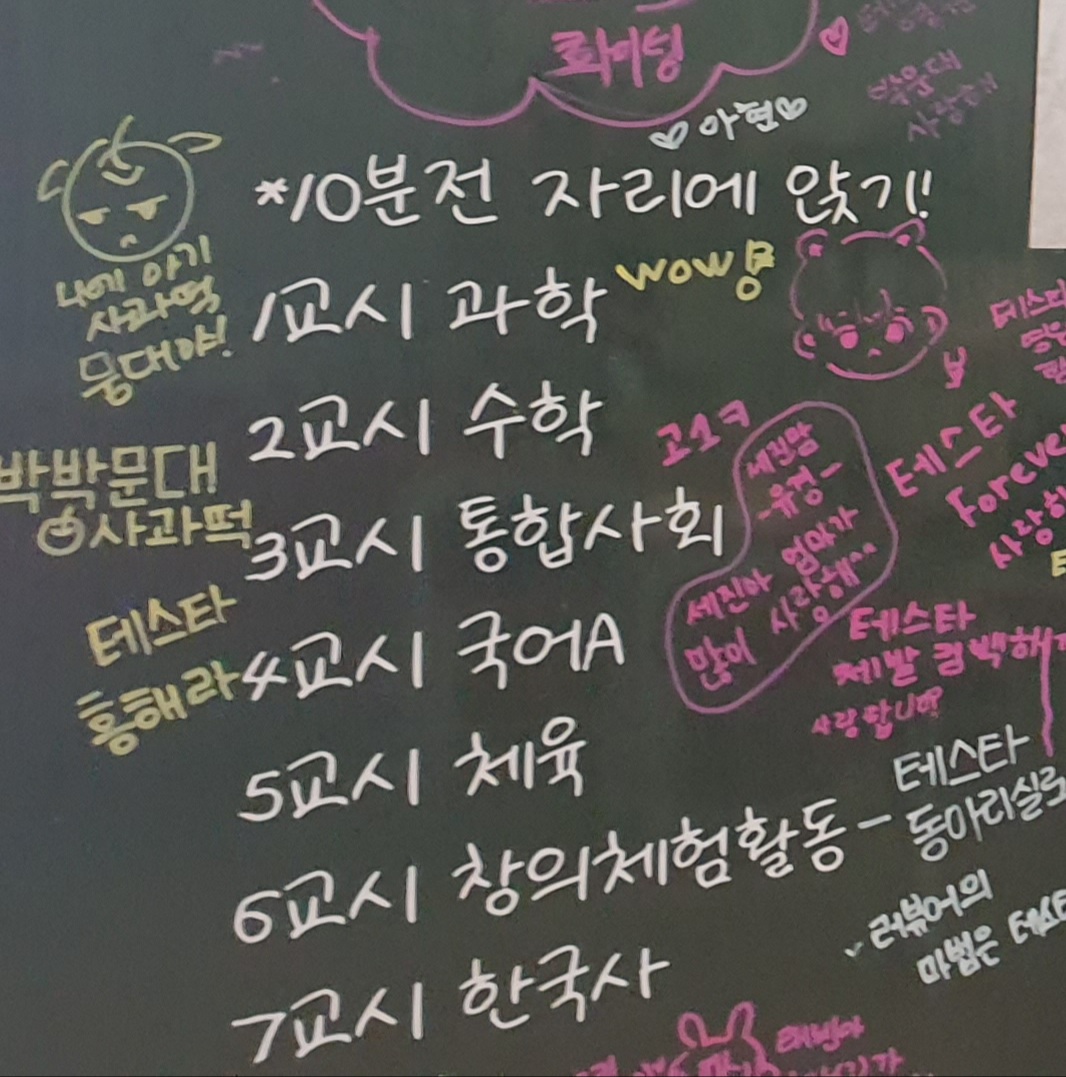 화이팅
박문대
사랑해
♡아현♡
*10분전 자리에 앉기!
나에 아기
사과떡
뭉대야!
1교시 과학
wow
2교시 수학
박박문대
사과떡
고
세진맘
-유경-
세진아 엄마가
많이 사랑해^^
테스타
Forever
3교시 통합사회
테스타
흥해라
4교시 국어A
테스타
제발 컴백해
사랑합니다
5교시 체육
6교시 창의체험활동 - 테스타
동아리실로
러뷰어의
마법은 테스타
7교시 한국사